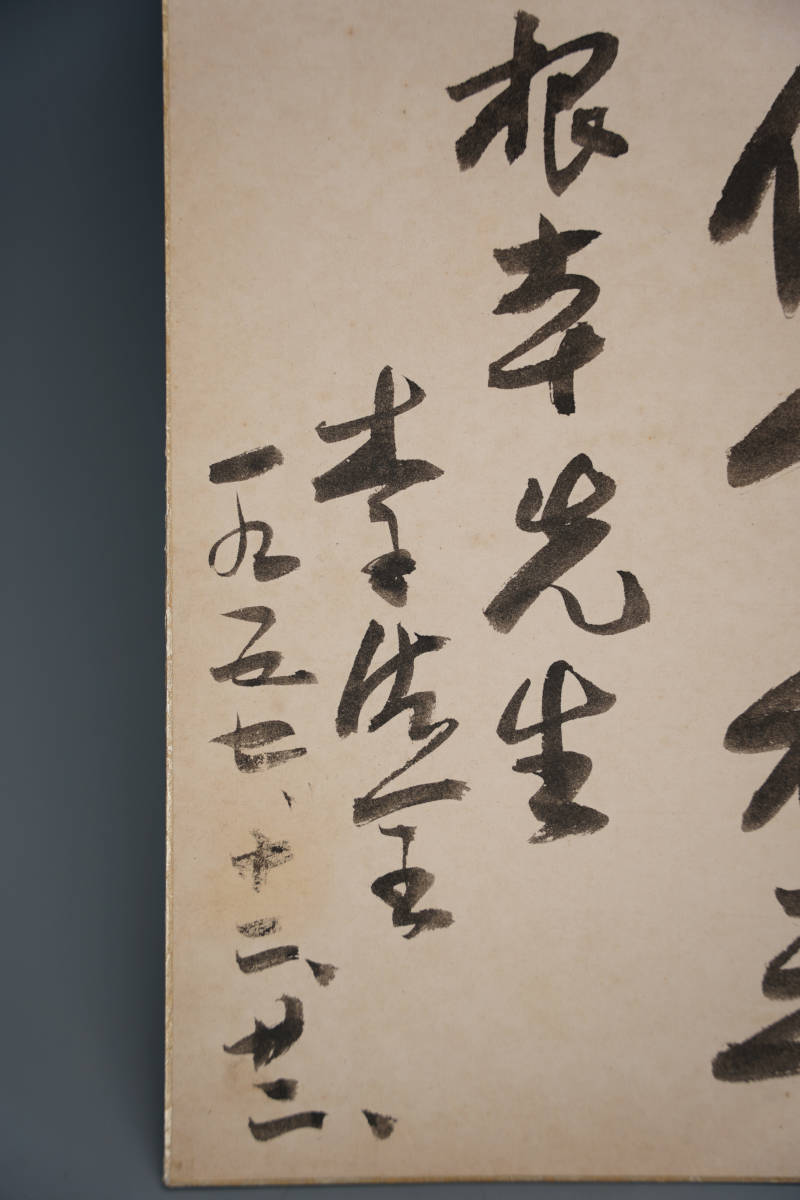 根本先生
李德全
一九五七、十二、廿二、